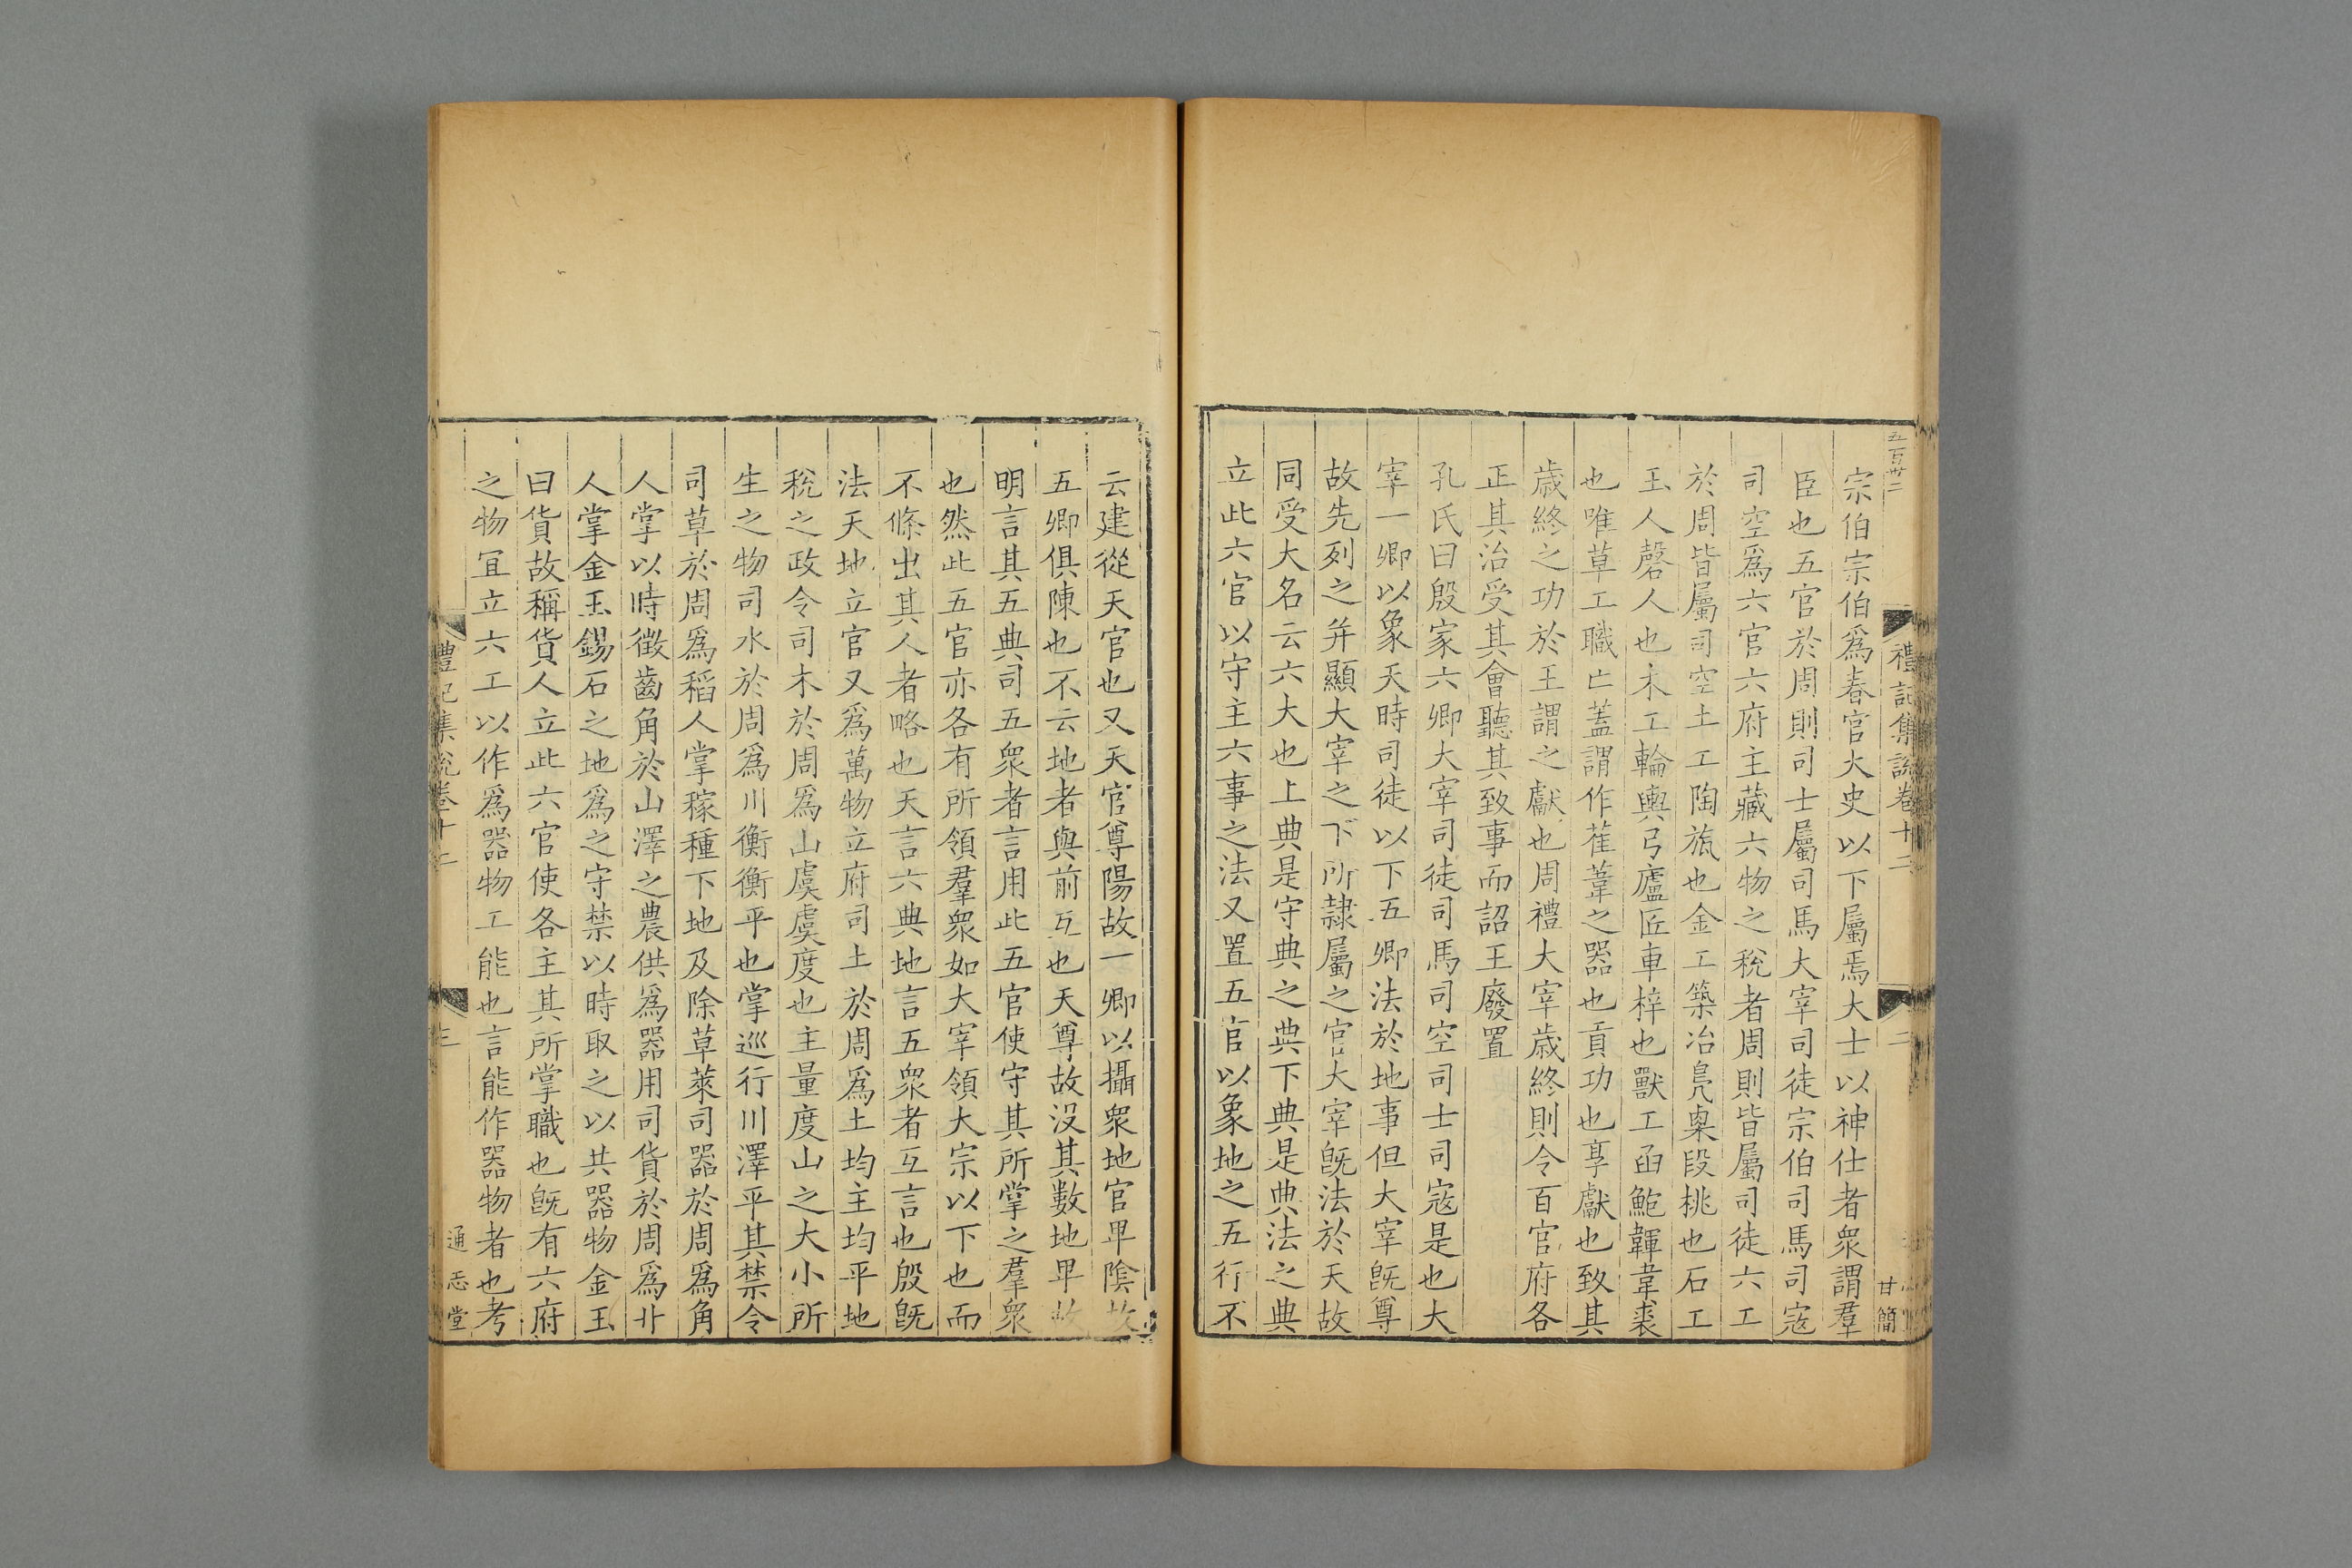 五百卅二
禮記集説卷十二
二
甘簡
宗伯宗伯爲春官大史以下屬焉大士以神仕者衆謂羣
臣也五官於周則司士屬司馬大宰司徒宗伯司馬司寇
司空爲六官六府主藏六物之稅者周則皆屬司徒六工
於周皆屬司空土工陶旊也金工築冶鳧㮚段桃也石工
玉人磬人也木工輪輿弓廬匠車梓也獸工函鮑韗韋裘
也唯草工職亡蓋謂作萑葦之器也貢功也享獻也致其
歲終之功於王謂之獻也周禮大宰歲終則令百官府各
正其治受其會聽其致事而詔王廢置
孔氏曰殷家六卿大宰司徒司馬司空司士司寇是也大
宰一卿以象天時司徒以下五卿法於地事但大宰旣尊
故先列之并顯大宰之下所隷屬之官大宰旣法於天故
同受大名云六大也上典是守典之典下典是典法之典
立此六官以守主六事之法又置五官以象地之五行不
云建從天官也又天官尊陽故一卿以攝衆地官卑隂故
五卿俱陳也不云地者與前互也天尊故没其數地卑故
明言其五典司五衆者言用此五官使守其所掌之羣衆
也然此五官亦各有所領羣衆如大宰領大宗以下也而
不條出其人者略也天言六典地言五衆者互言也殷旣
法天地立官又爲萬物立府司土於周爲土均主均平地
稅之政令司木於周爲山虞虞度也主量度山之大小所
生之物司水於周爲川衡衡平也掌巡行川澤平其禁令
司草於周爲稻人掌稼種下地及除草萊司器於周爲角
人掌以時徵齒角於山澤之農供爲器用司貨於周爲卝
人掌金玉錫石之地爲之守禁以時取之以共器物金玉
曰貨故稱貨人立此六官使各主其所掌職也旣有六府
之物宜立六工以作爲器物工能也言能作器物者也考
禮記集説卷十二
三
通志堂